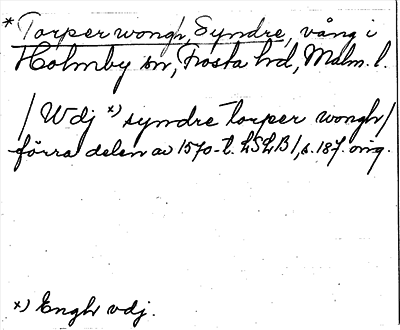 * Torper wongh, Syndre, vång i
Holmby sn, Frosta hd, Malm. l.
/ Wdj x) syndre Torper wongh /
förra delen av 1570-t. LSLB 1, s. 187. orig.
x) Engh vdj.